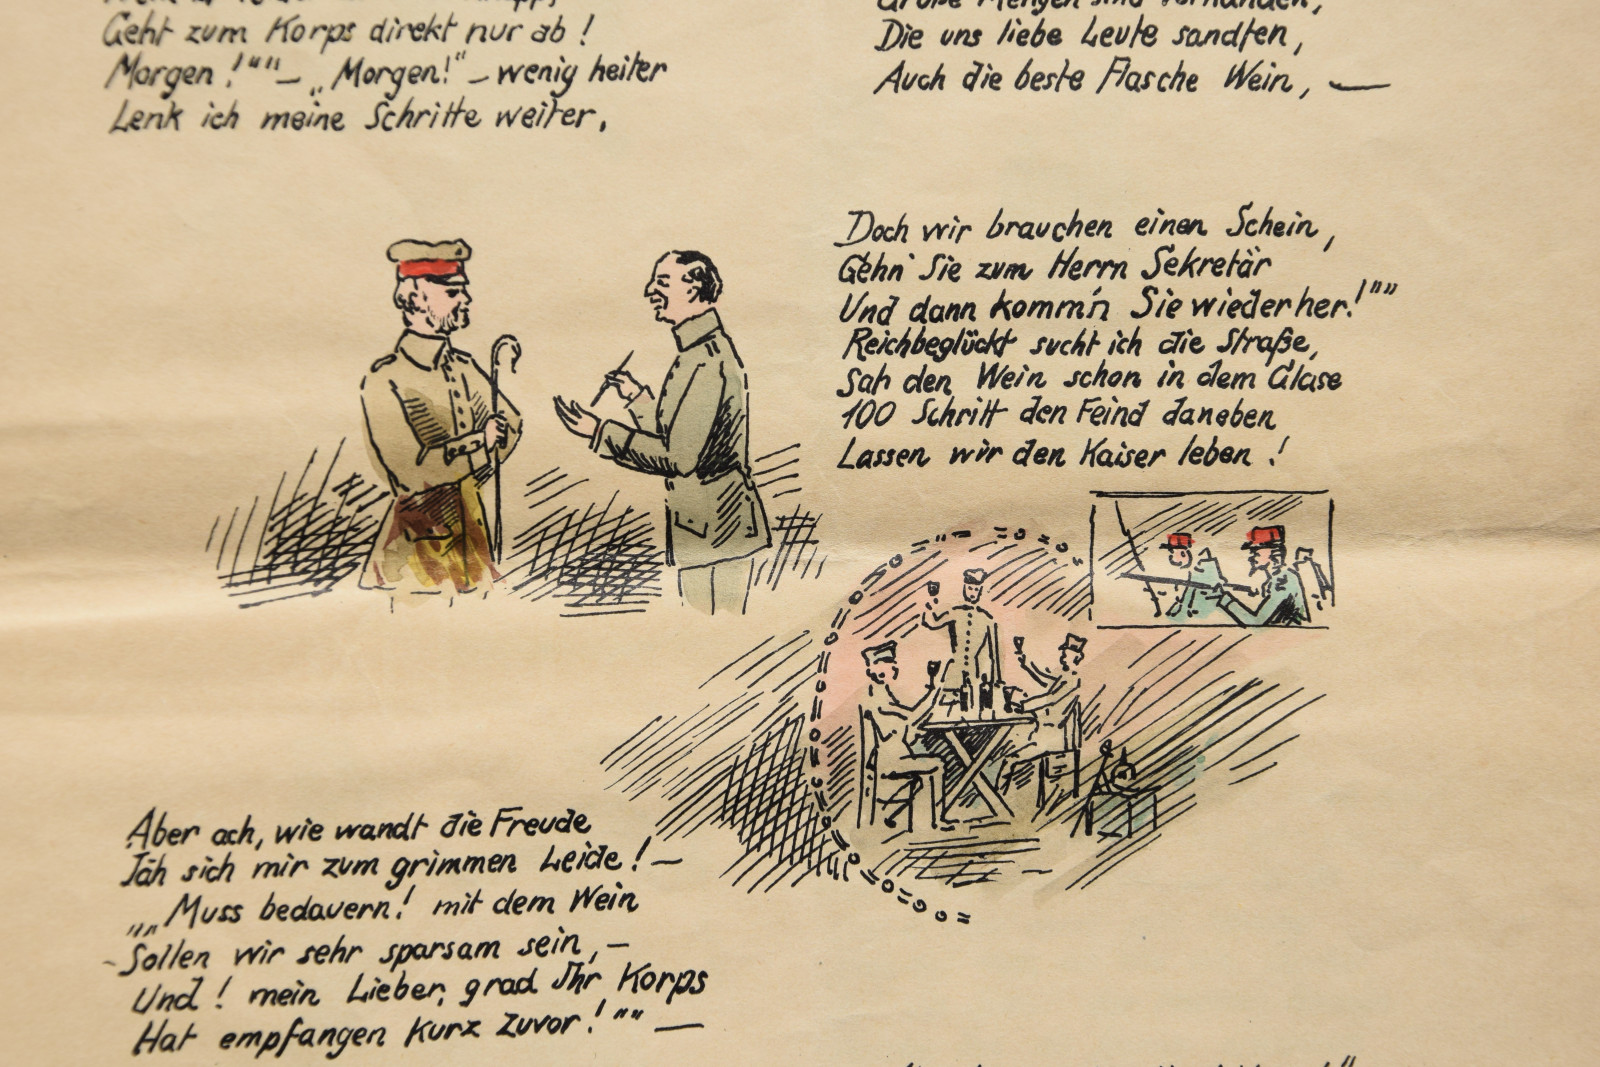 Geht zum Korps direkt nur ab!
Morgen!““ – „Morgen!“ – wenig heiter
Lenk ich meine Schritte weiter.
Große Mengen sind vorhanden,
Die uns liebe Leute sandten,
Auch die beste Flasche Wein, —
Doch wir brauchen einen Schein,
Gehn' Sie zum Herrn Sekretär
Und dann komm'n Sie wieder her!““
Reichbeglückt sucht ich die Straße,
Sah den Wein schon in dem Glase
100 Schritt den Feind daneben
Lassen wir den Kaiser leben!
Aber ach, wie wandt die Freude
Jäh sich mir zum grimmen Leide! –
„„Muss bedauern! mit dem Wein
Sollen wir sehr sparsam sein, –
Und! mein Lieber, grad Ihr Korps
Hat empfangen kurz zuvor!““ —